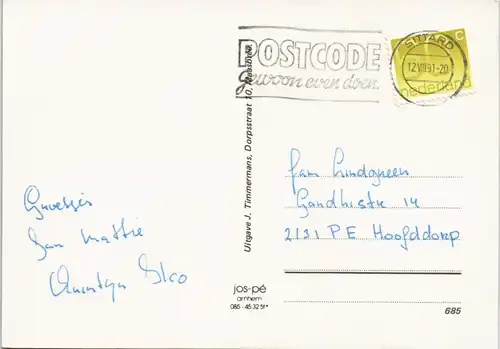 POSTCODE
gewoon even doen.
SITTARD
12 VIII 91-20
c
nederland
Uitgave J. Timmermans, Dorpsstraat 10, Maasbree
Groetjes
van Mattie
Quintyn Elco
fam Lindgreen
Gandhistr 14
2131 PE Hoofddorp
jos-pé
arnhem
085-45 32 51*
685